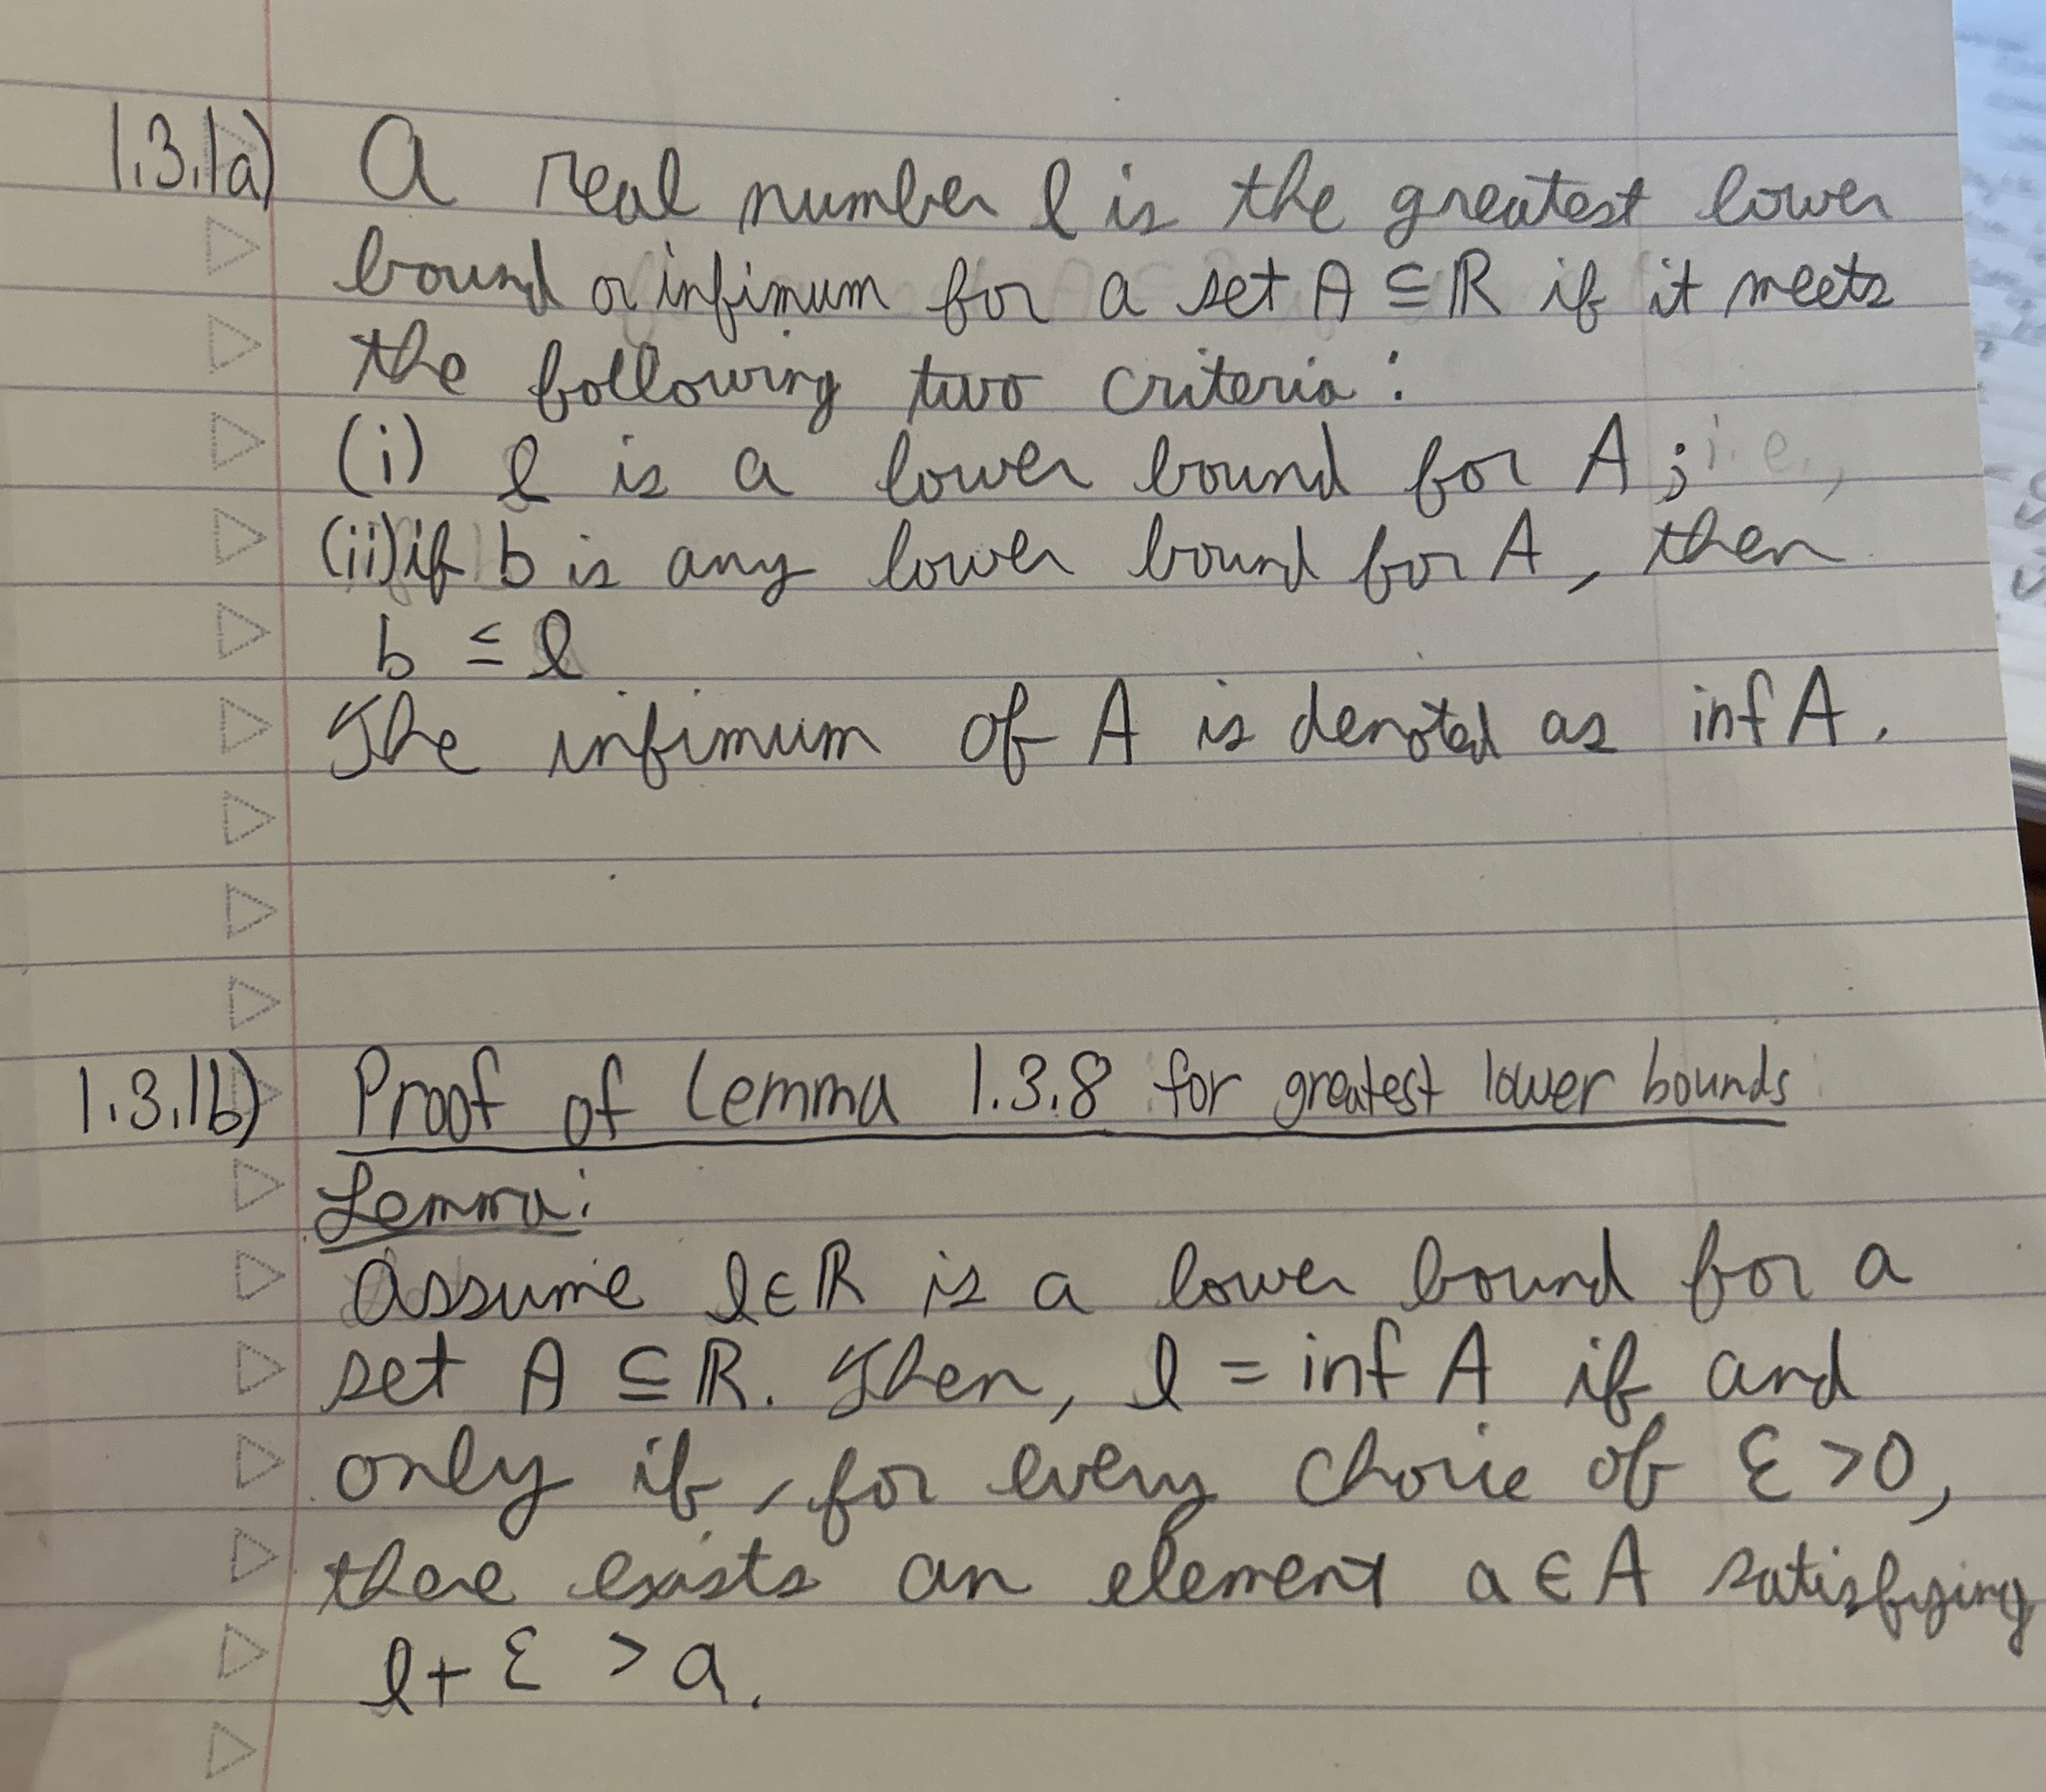 1.3.1a) A real number l is the greatest lower
bound or infimum for a set A ⊆ ℝ if it meets
the following two criteria:
(i) l is a lower bound for A; i.e.,
(ii) if b is any lower bound for A, then
b ≤ l
The infimum of A is denoted as inf A.
1.3.1b) Proof of Lemma 1.3.8 for greatest lower bounds
Lemma:
Assume l ∈ ℝ is a lower bound for a
set A ⊆ ℝ. Then, l = inf A if and
only if, for every choice of ε > 0,
there exists an element a ∈ A satisfying
l + ε > a.